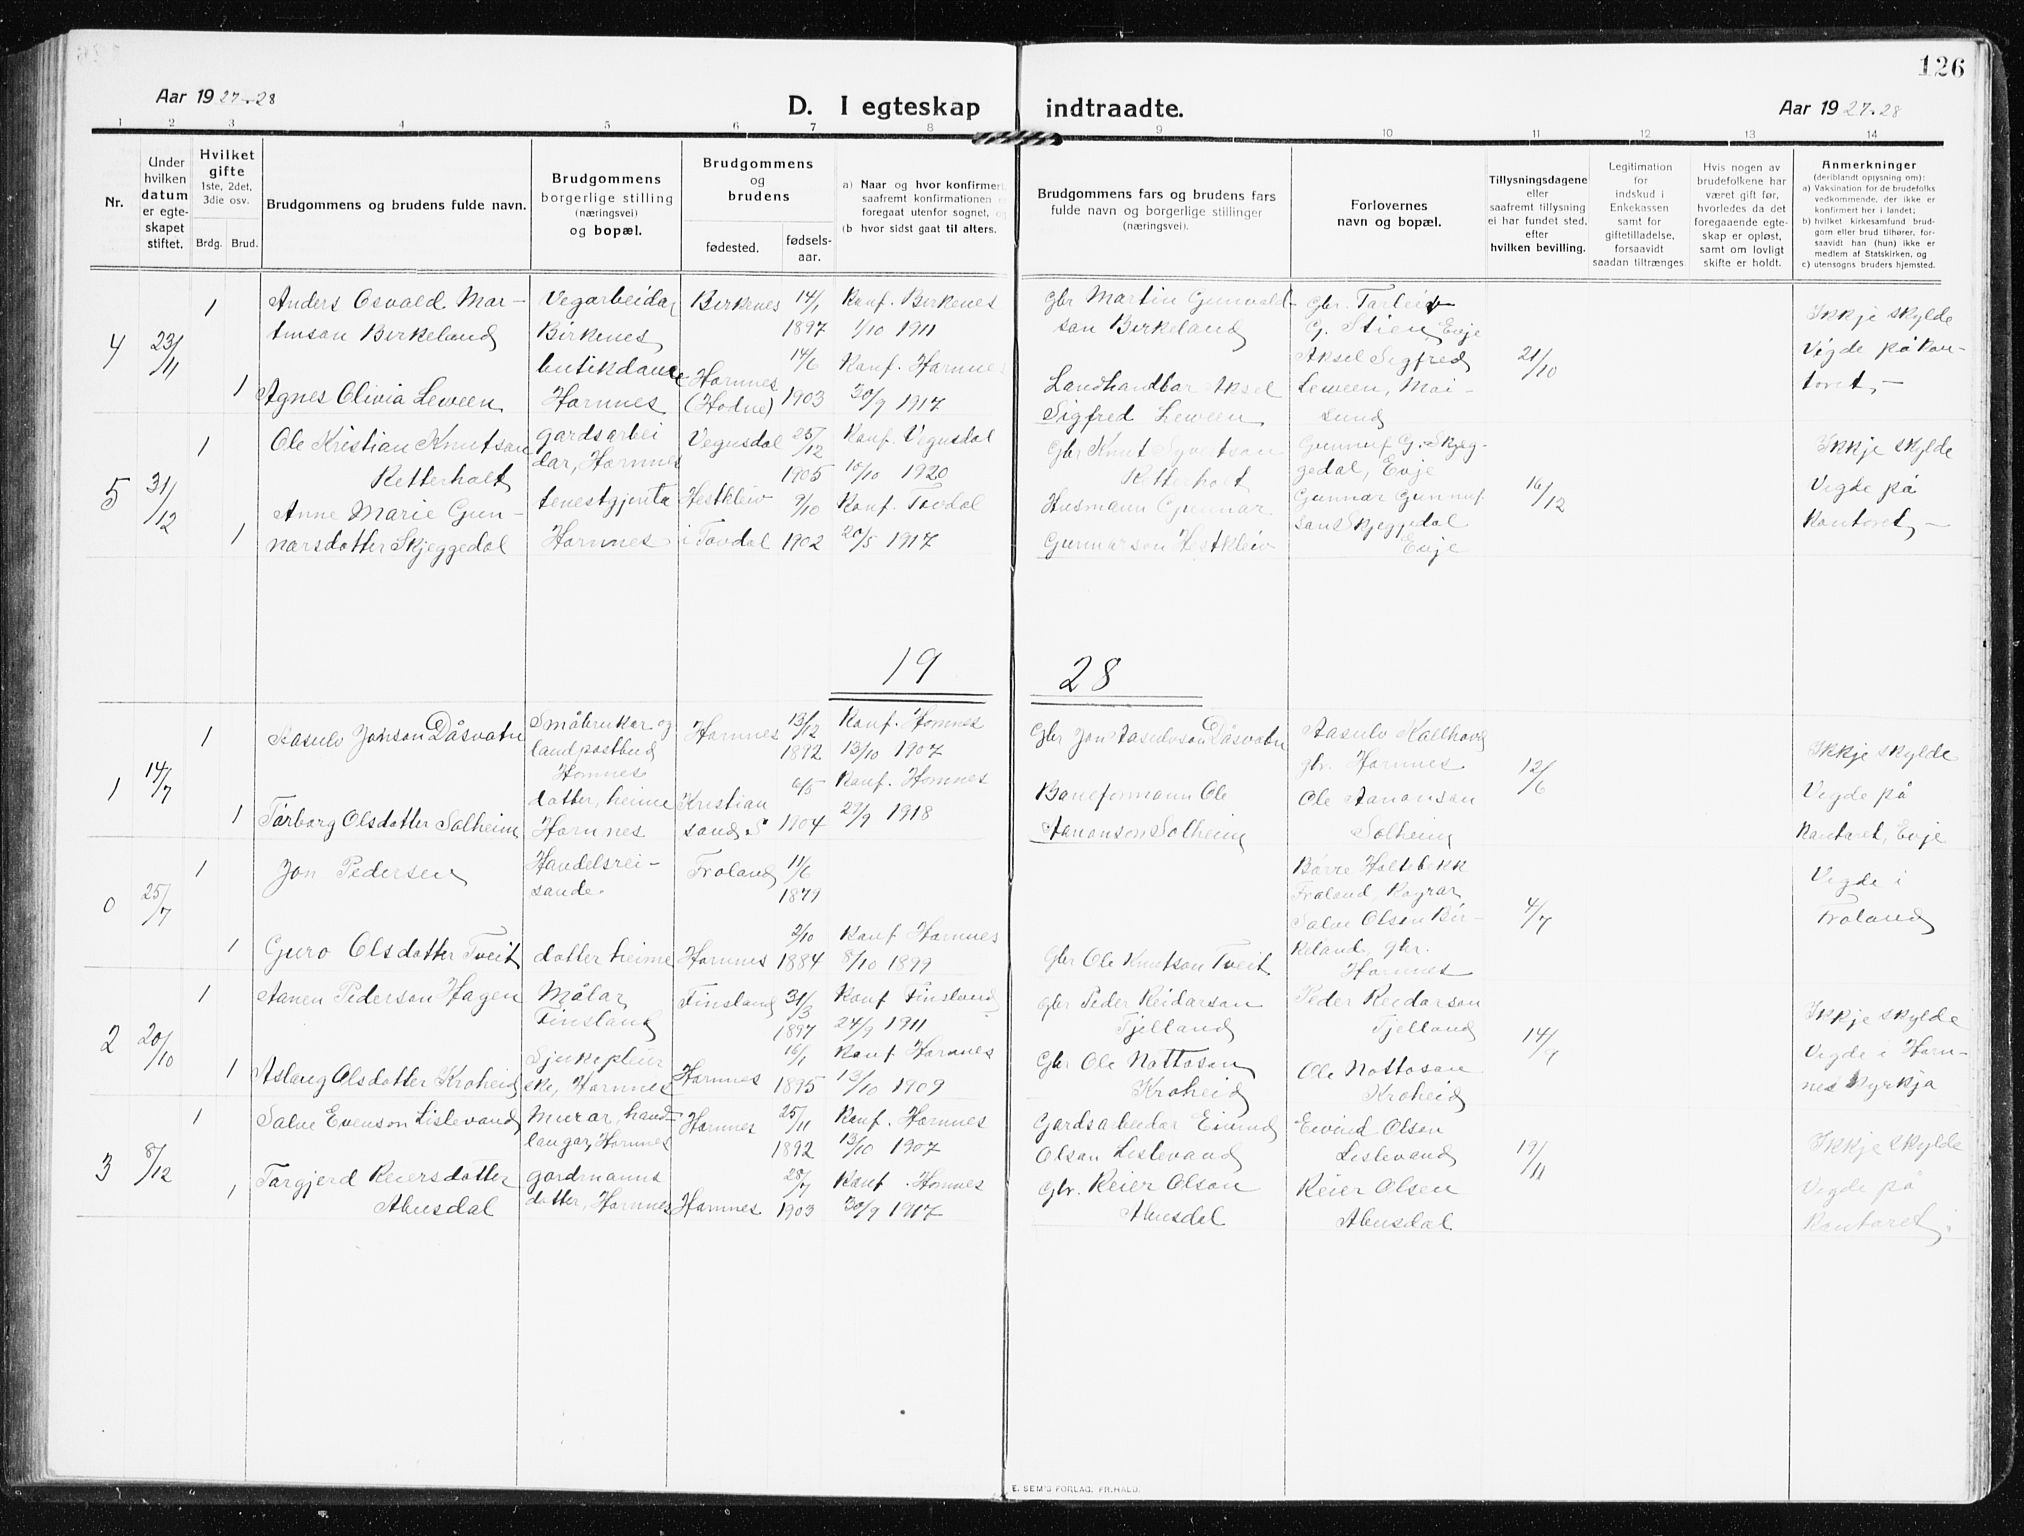 126
Aar 1927-28
D. I egteskap indtraadte.
Aar 1927-28
1 2 3 4 5 6 7 8 9 10 11 12 13 14
Nr.
Under hvilken datum er egteskapet stiftet.
Hvilket gifte 1ste, 2det, 3die osv.
Brdg. Brud.
Brudgommens og brudens fulde navn.
Brudgommens borgerlige stilling (næringsvei) og bopæl.
Brudgommens og brudens
fødested.
fødselsaar.
a) Naar og hvor konfirmert, saafremt konfirmationen foregaat utenfor sognet,
(b hvor sidst gaat til alters.
Brudgommens fars og brudens fars fulde navn og borgerlige stillinger (næringsvei).
Forlovernes navn og bopæl.
Tillysningsdagene eller saafremt tillysning ei har fundet sted, efter hvilken bevilling.
Legitimation for indskud i Enkekassen samt for giftetilladelse, forsaavidt saadan tiltrænges
Hvis nogen av brudefolkene har været gift før, hvorledes da det foregaaende egteskap er opløst, samt om lovligt skifte er holdt.
Anmerkninger (deriblandt opjysning om):
a) Vaksination for de brudefolks vedkommende, der ikke er konfirmert her i landet;
b) hvilket kirkesamfund brudgom eller brud tilhører, forsaavidt han (hun) ikke er medlem af Statskirken, og
c) utensogns bruders hjemsted.
4 23/11
1 Anders Osvald Martinson Birkeland
Vegarbeidar Birkenes
Birkenes 14/1 1897
Konf. Birkenes 1/10 1911
gbr Martin Gunvaldson Birkeland
gbr. Tarleiv G. Stien Evje
21/10
Ikkje skylde
Vigde på kontoret,-
1 Agnes Olivia Leween
butikdame Hornnes
Hornnes (Hodne) 14/6 1903
Konf. Hornnes 30/9 1917
Landhandlar Aksel Sigfred Leween
Aksel Sigfred Leween, Moisund
5 31/12
1 Ole Kristian Knutson Retterholt
gardsarbeidar, Hornnes
Vegusdal 25/12 1905
Konf. Vegusdal 10/10 1920
gbr Knut Syvertson Retterholt
Gunnuf G. Skjeggedal, Evje
16/12
Ikkje skylde
Vigde på kontoret,-
1 Anne Marie Gunnarsdotter Skjeggedal
tenestgjenta Hornnes
Hestkleiv i Tovdal 9/10 1902
Konf. Tovdal 20/5 1917
Husmann Gunnar Gunnarson Hestkleiv
Gunnar Gunnufson Skjeggedal Evje
19 28
1 14/7
1 Aasulv Jonson Dåsvatn
Småbrukar og landpostbud Hornnes
Hornnes 13/12 1892
Konf. Hornnes 13/10 1907
Gbr Jon Aasulvson Dåsvatn
Aasulv Kallhovd gbr. Hornnes
12/6
Ikkje skylde
Vigde på kontoret, Evje
1 Torborg Olsdotter Solheim
dotter, heime Hornnes
Kristiansand S 6/5 1904
Konf. Hornnes 29/9 1918
Baneformann Ole Aanonson Solheim
Ole Aanonson Solheim
0 25/7
1 Jon Pedersen
Handelsreisande.
Froland 11/6 1879
Børre Holtebekk Froland,
4/7
Vigde i Froland
1 Guro Olsdotter Tveit
dotter heime
Hornnes 2/10 1884
Konf Hornnes 8/10 1899
Gbr Ole Knutson Tveit
Salve Olsen Birkeland, gbr. Hornnes
2 20/10
1 Aanen Pederson Hagen
Målar Finsland
Finsland 31/3 1897
Konf Finsland 24/9 1911
gbr Peder Reidarson Fjelland
Peder Reidarson Fjelland
Ikkje skylde
Vigde i Hornnes Kyrkja
1 Aslaug Olsdotter Kroheid
Sjukepleierske, Hornnes
Hornnes 16/1 1895
Konf Hornnes 13/10 1909
Gbr Ole Nottoson Kroheid
Ole Nottoson Kroheid
3 8/12
1 Salve Evenson Lislevand
Murar, handlangar, Hornnes
Hornnes 25/11 1892
Konf. Hornnes 13/10 1907
Gardsarbeidar Eivind Olson Lislevand
Eivind Olson Lislevand
19/11
Ikkje skylde
Vigde på kontoret.
1 Torgjerd Reiersdotter Abusdal
gardmanns dotter, Hornnes
Hornnes 28/7 1903
Konf. Hornnes 30/9 1917
Gbr. Reier Olson Abusdal
Reier Olsen Abusdal
E. SEM'S FORLAG, FR.HALD.